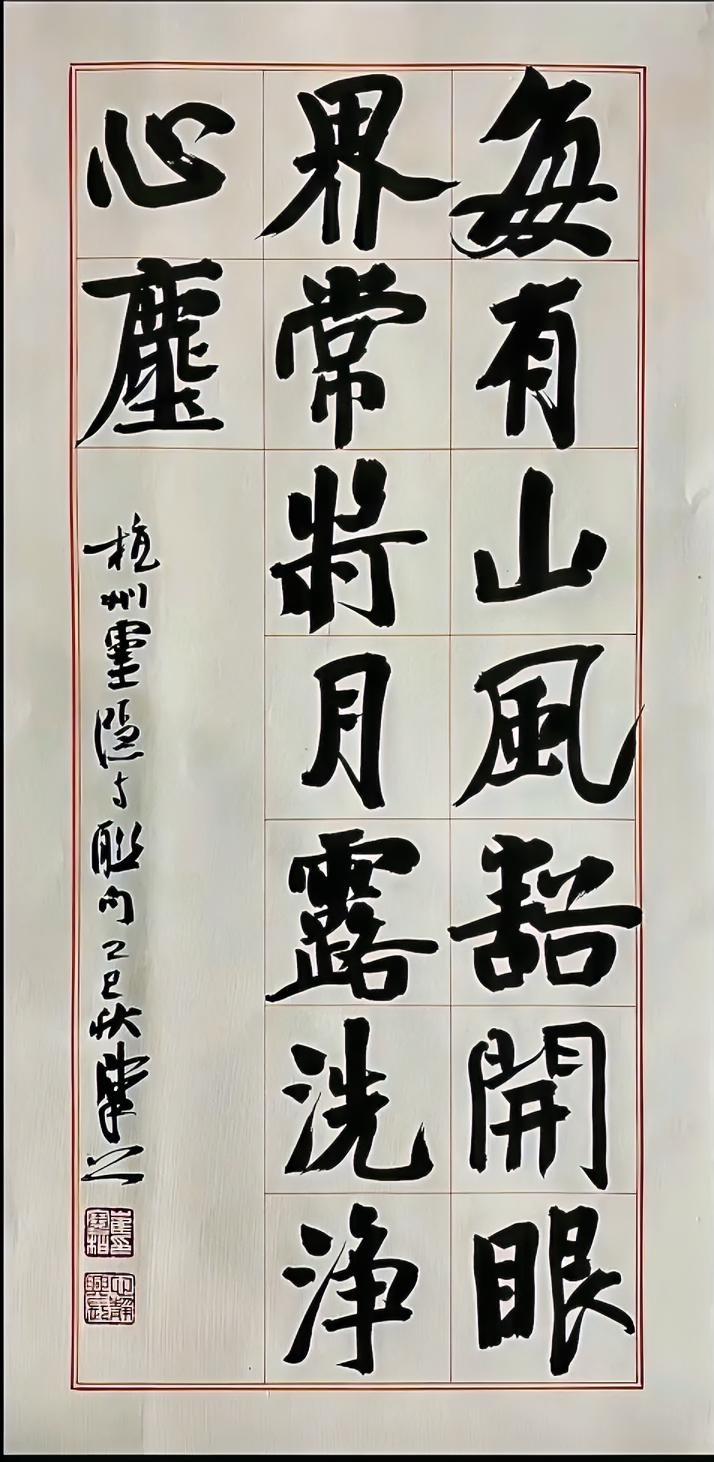 每有山風豁開眼
界常將月露洗淨
心塵
杭州靈隱寺聯句乙巳秋肇之